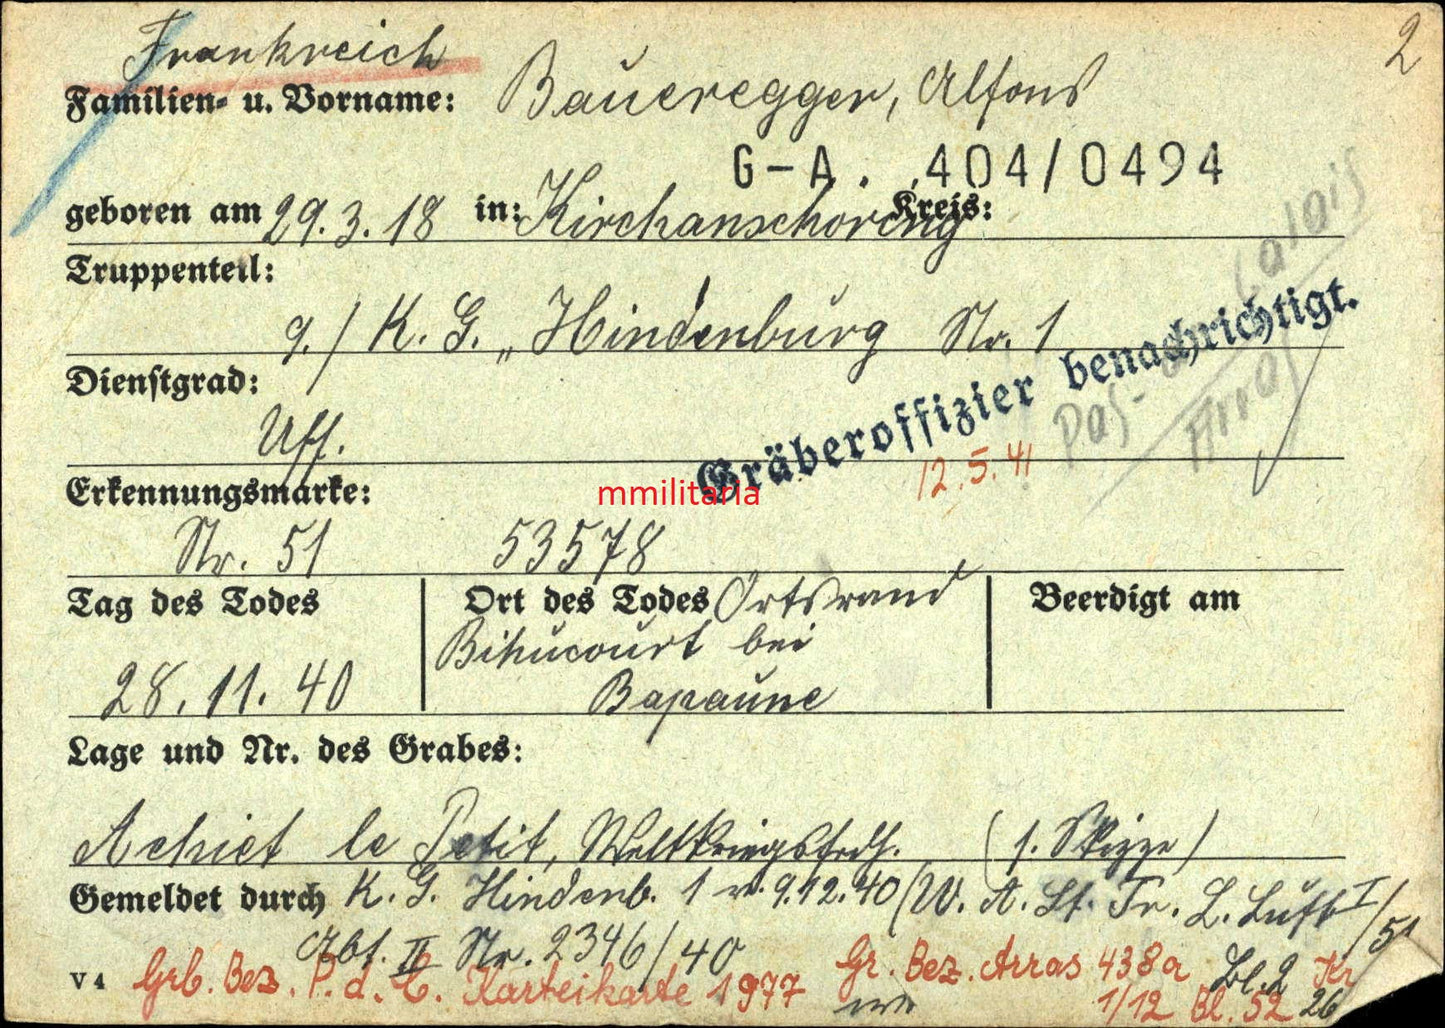 Frankreich
2
Familien- u. Vorname: Baueregger, Alfons
G-A. 404/0494
geboren am 29.3.18 in: Kirchanschöring Kreis:
Calais
Truppenteil:
9./ K. G. „Hindenburg Nr. 1
Gräberoffizier benachrichtigt.
12.5.41
Pas-
Arras
Dienstgrad:
Uff.
Erkennungsmarke:
mmilitaria
Nr. 51 53578
Tag des Todes
28.11.40
Ort des Todes Ortsrand
Bihucourt bei
Bapaume
Beerdigt am
Lage und Nr. des Grabes:
Achiet le Petit, Weltkriegsfrdh. (1. Skizze)
Gemeldet durch K. G. Hindenb. 1 v. 9.12.40 (W. A. St. Fr. L. Luft I/51
Abt. II Nr. 2346/40
V 4 Grb. Bez. P. d. C. Karteikarte 1977
Gr. Bez. Arras 438a Bl. 2 Kr
1/12 Bl. 52 26